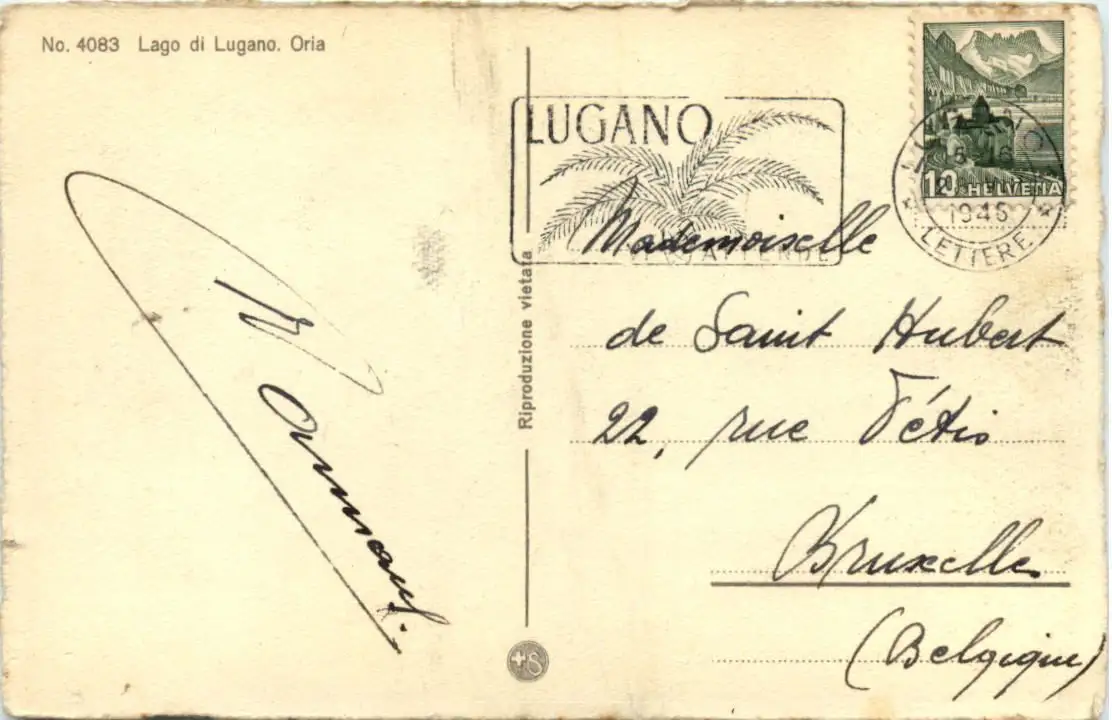 No. 4083 Lago di Lugano. Oria
LUGANO
ATTENDE
10 HELVETIA
1946
LETTERE
Riproduzione vietata
Mademoiselle
de Saint Hubert
22, rue Fétis
Bruxelles
(Belgique)
+S